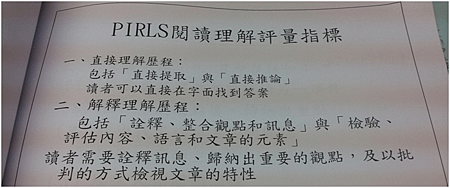 PIRLS閱讀理解評量指標
一、直接理解歷程：
包括「直接提取」與「直接推論」
讀者可以直接在字面找到答案
二、解釋理解歷程：
包括「詮釋、整合觀點和訊息」與「檢驗、
評估內容、語言和文章的元素」
讀者需要詮釋訊息、歸納出重要的觀點，及以批
判的方式檢視文章的特性